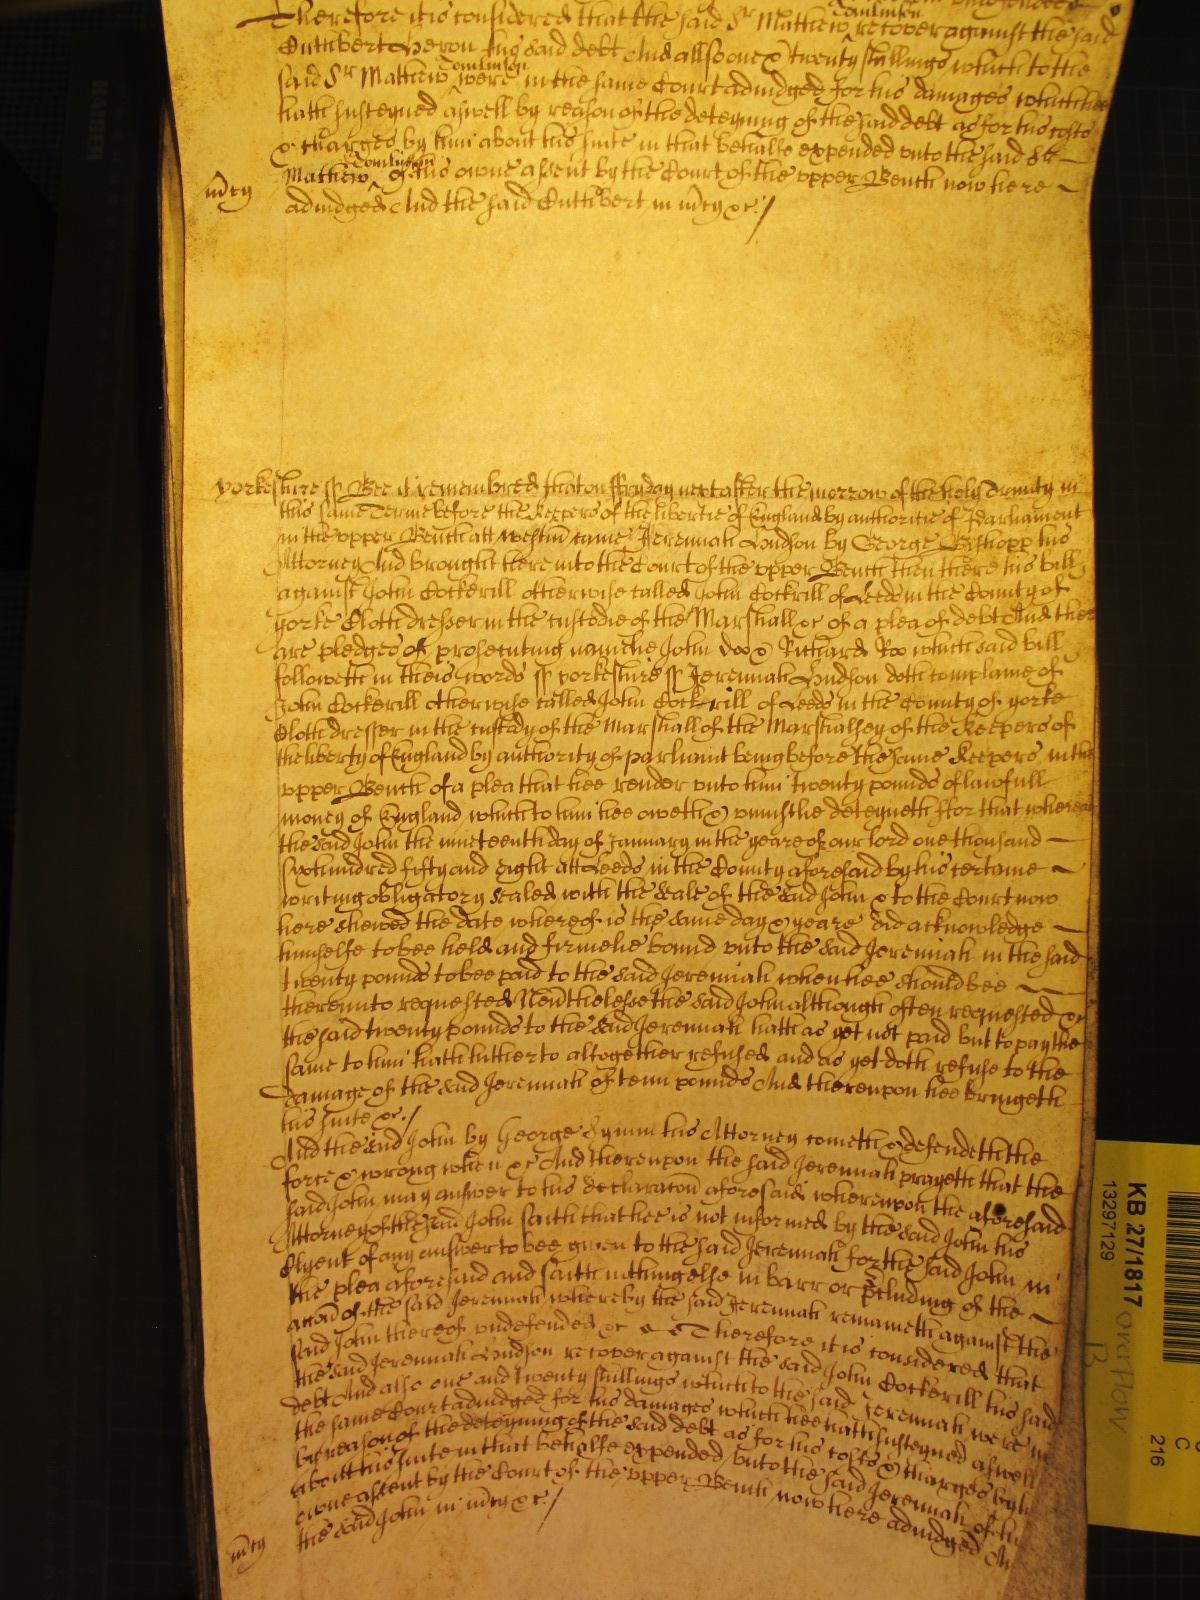 Therefore it is considered that the said Sr Mathew Tomlinson recover against the said
Cuthbert Heron his said debt And allso one & twenty shillings which to the
said Sr Mathew Tomlinson were in the same Court adiudged for his damages which hee
hath susteyned aswell by reason of the deteyning of the said debt as for his costs
& charges by him about his suite in that behalfe expended vnto the said Sr
Mathew Tomlinson of his owne assent by the Court of the vpper Bench now here
adiudged And the said Cuthbert in mcy &c /
mcy
Yorkeshire ss Bee it remembred that on ffryday next after the morrow of the holy Trinity in
this same Terme before the Keepers of the libertie of England by authoritie of Parliament
in the vpper Bench att Westm came Jeremiah by George Bishopp his
Attorney And brought here into the Court of the vpper Bench then there his bill
against John Cockerill otherwise called John Cockrill of Leeds in the County of
yorke Clothdresser in the custodie of the Marshall &c of a plea of debt And there
are pledges of prosecuting namelie John Doo & Richard Roo which said bill
followeth in theis words ss yorkeshire ss Jeremiah doth complaine of
John Cockerill otherwise called John Cockrill of Leeds in the County of yorke
Clothdresser in the custody of the Marshall of the Marshalsey of the Keepers of
the liberty of England by authority of parliamt being before the same Keepers in the
vpper Bench of a plea that hee render vnto him twenty pounds of lawfull
money of England which to him hee oweth & vniustlie deteyneth ffor that whereas
the said John the nineteenth day of January in the yeare of our lord one thousand
six hundred fifty and eight att Leeds in the County aforesaid by his certaine
writing obligatory sealed with the seale of the said John & to the Court now
here shewed the date whereof is the same day & yeare did acknowledge
himselfe to bee held and firmelie bound vnto the said Jeremiah in the said
twenty pounds to bee paid to the said Jeremiah when hee should bee
therevnto requested Neuthelesse the said John although often requested &c
the said twenty pounds to the said Jeremiah hath as yet not paid but to pay the
same to him hath hitherto altogether refused and as yet doth refuse to the
damage of the said Jeremiah of tenn pounds And therevpon hee bringeth
his suite &c /
And the said John by George his Attorney cometh & defendeth the
force & wrong when &c And therevpon the said Jeremiah prayeth that the
said John may answer to his declaracon aforesaid wherevpon the aforesaid
Attorney of the said John saith that hee is not informed by the said John his
Clyent of any answer to bee given to the said Jeremiah for the said John in
the plea aforesaid and saith nothing else in barr or pcluding of the
accon of the said Jeremiah whereby the said Jeremiah remaineth against the
said John thereof vndefended &c Therefore it is considered that
the said Jeremiah recover against the said John Cockerill his said
debt And also one and twenty shillings which to the said Jeremiah were in
the same Court adiudged for his damages which hee hath susteyned aswell
by reason of the deteyning of the said debt as for his costs & charges by him
about his suite in that behalfe expended vnto the said Jeremiah of his
owne assent by the Court of the vpper Bench now here adiudged And
the said John in mcy &c /
mcy
KB 27/1817
13297129
overflow
B
C
216